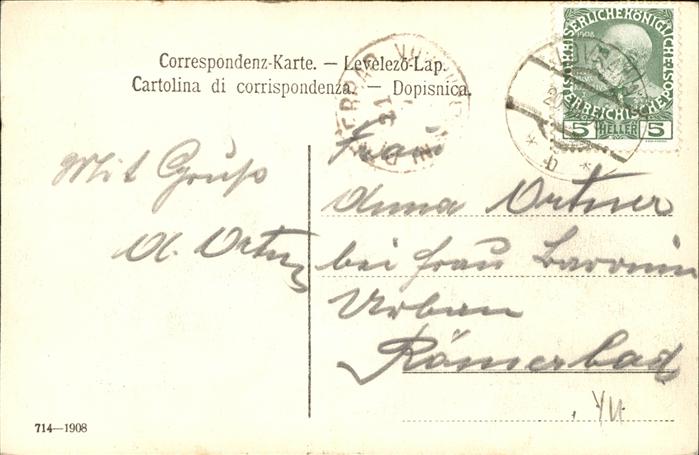 Correspondenz-Karte. — Levelező-Lap.
Cartolina di corrispondenza. — Dopisnica.
KAISERLICHE KÖNIGLICHE
1908
ÖSTERREICHISCHE
5 HELLER 5
b
21
Mit Gruß
A. Ortner
Frau
Anna Ortner
bei Frau Baronin
Urban
Römerbad
714—1908